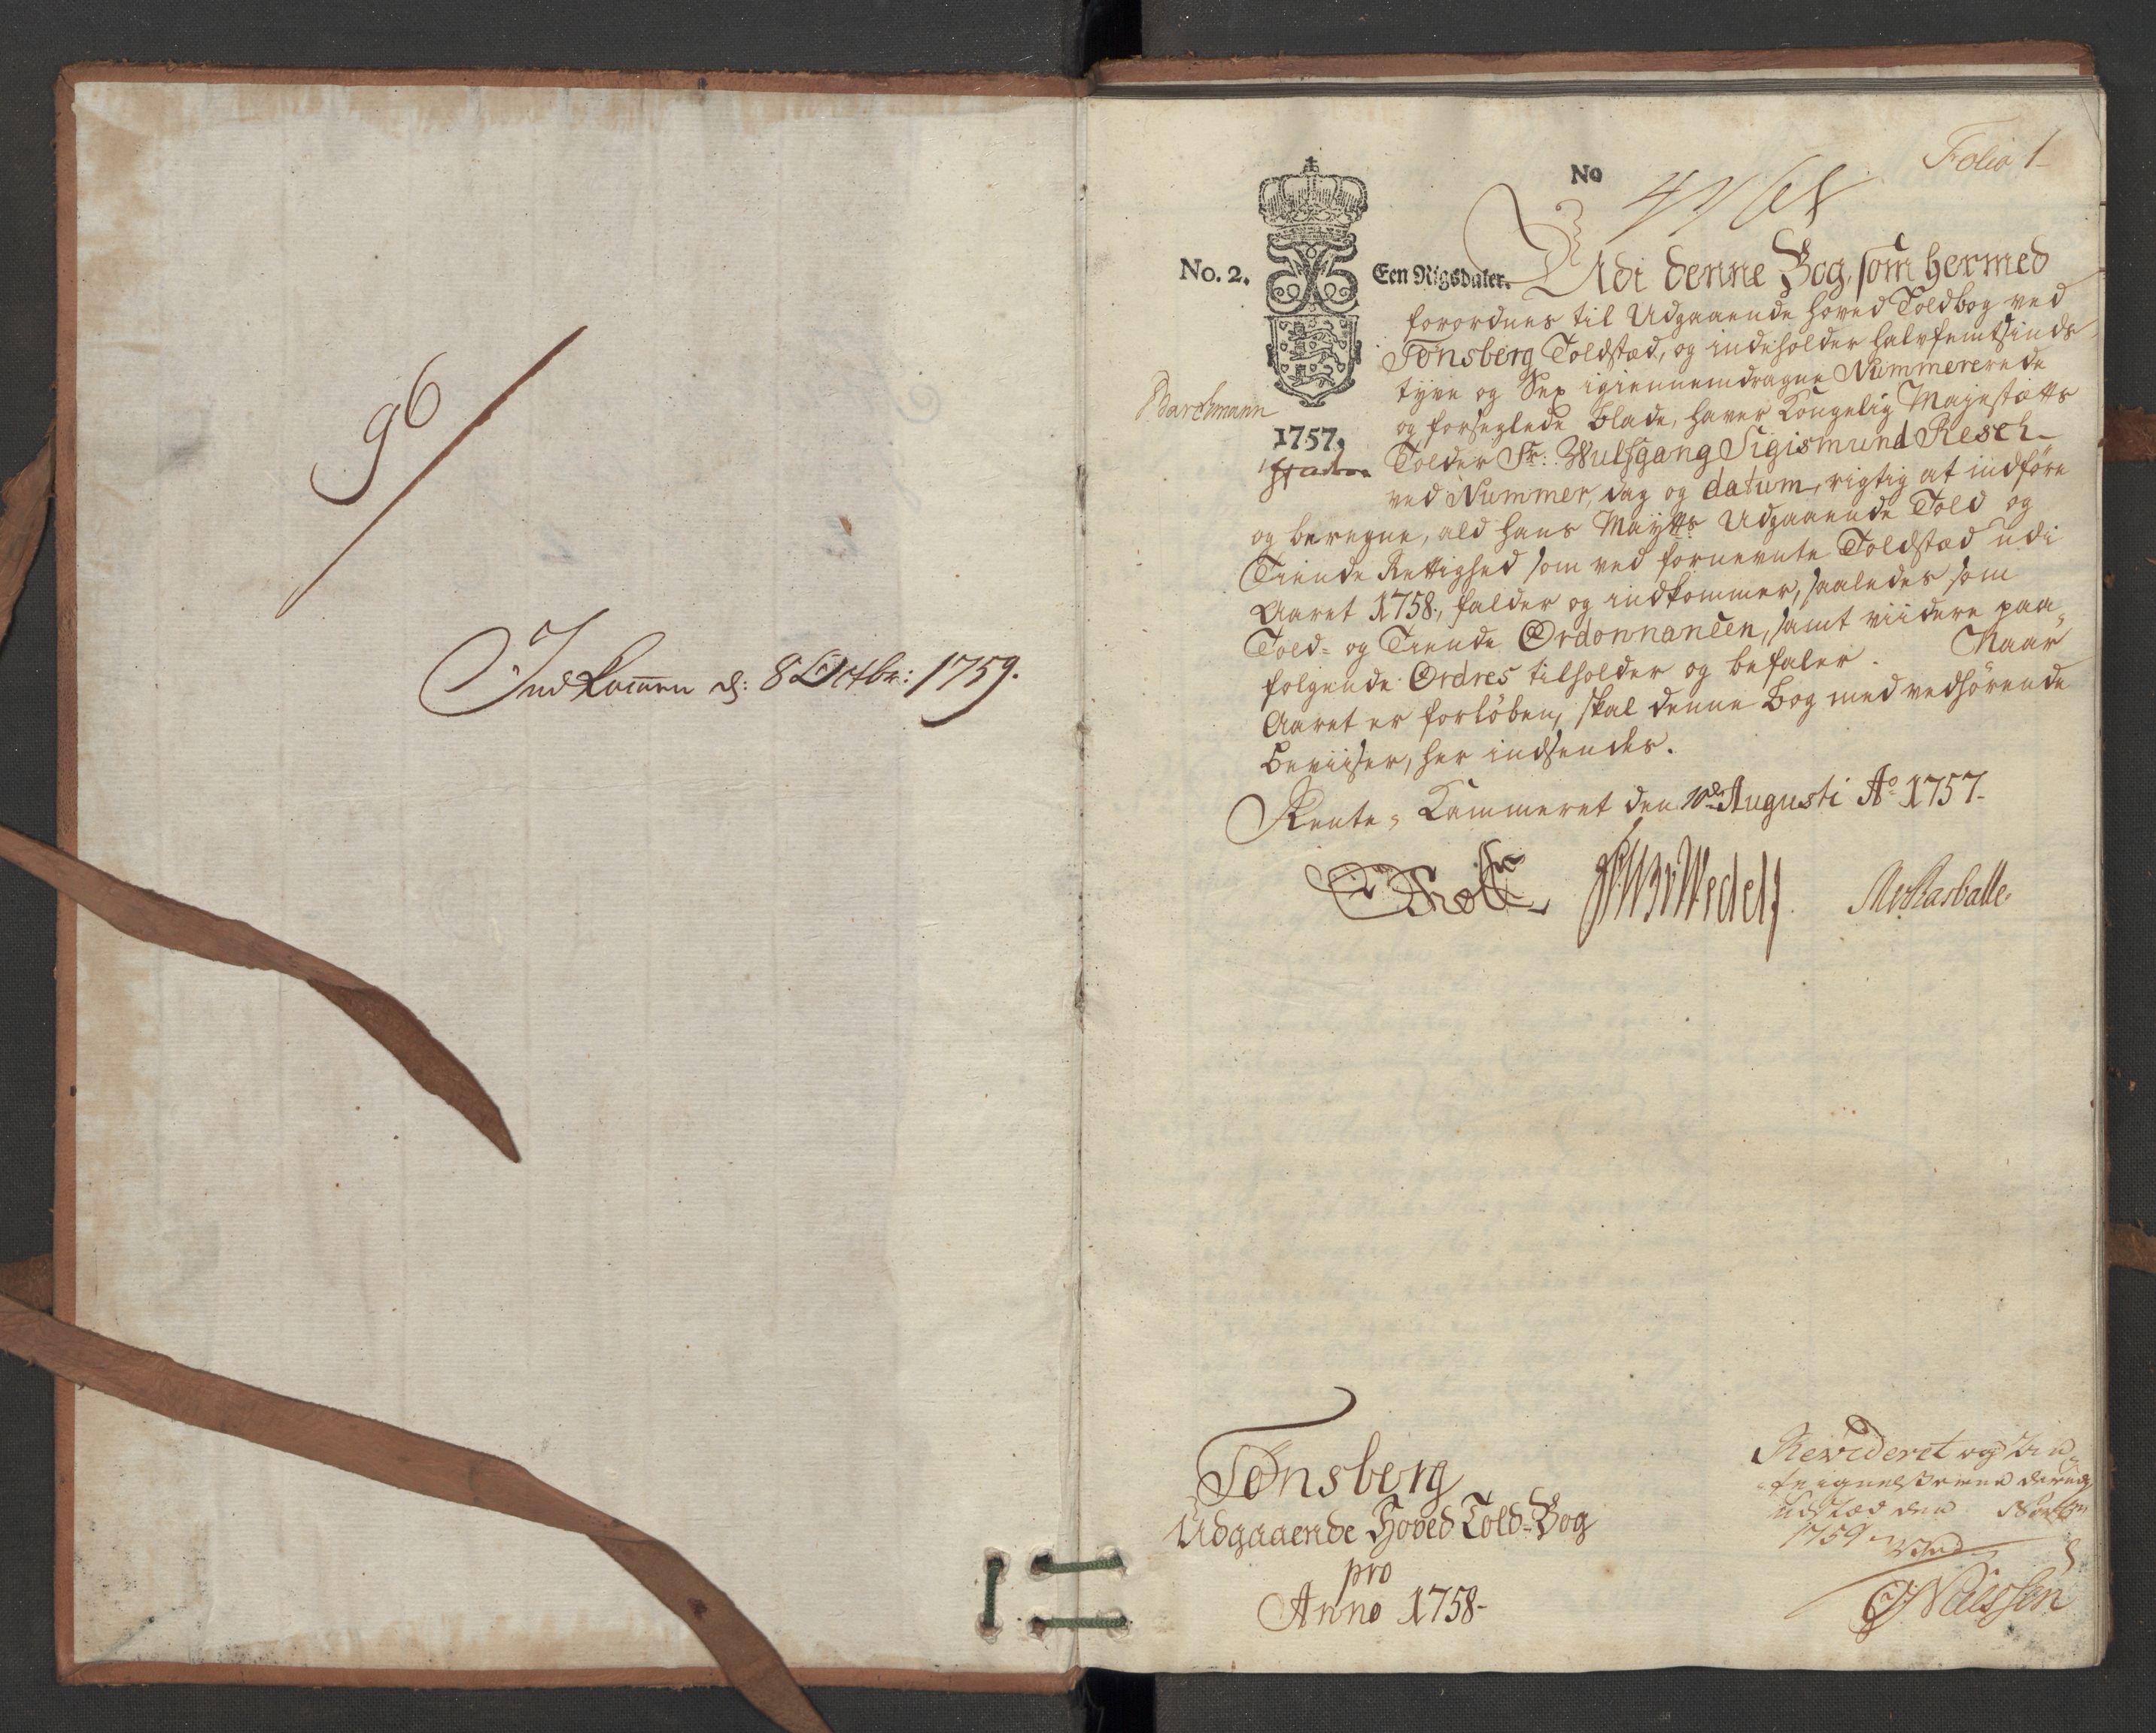 96
Indkommen d: 8 Octbr: 1759.
Folio 1
No
No. 2.
Een Rigsdaler.
1757.
Udi denne Bog, som hermed
forordnes til Udgaaende Hoved Toldbog ved
Tønsberg Toldstæd, og indeholder halvfemtsinds-
tyve og Sex igiennemdragne Nummererede
og forseglede Blade, haver Kongelig Mayestætts
Tolder Sr: Wulfgang Sigismund Resch
ved Nummer, dag og datum, rigtig at indføre
og beregne, ald Hans Maytts Udgaaende Told og
Tiende Rettighed som ved fornevnte Toldstæd udi
Aaret 1758, falder og indkommer, saaledes som
Told- og Tiende Ordonnancen, samt viidere paa-
følgende Ordres tilholder og befaler. Naar
Aaret er forløben, skal denne Bog med vedhørende
Beviiser, her indsendes.
Rente-Kammeret den 10de Augusti Ao 1757.
Tønsberg
Udgaaende Hoved Told-Bog
pro
Anno 1758-
Revideret og
1759